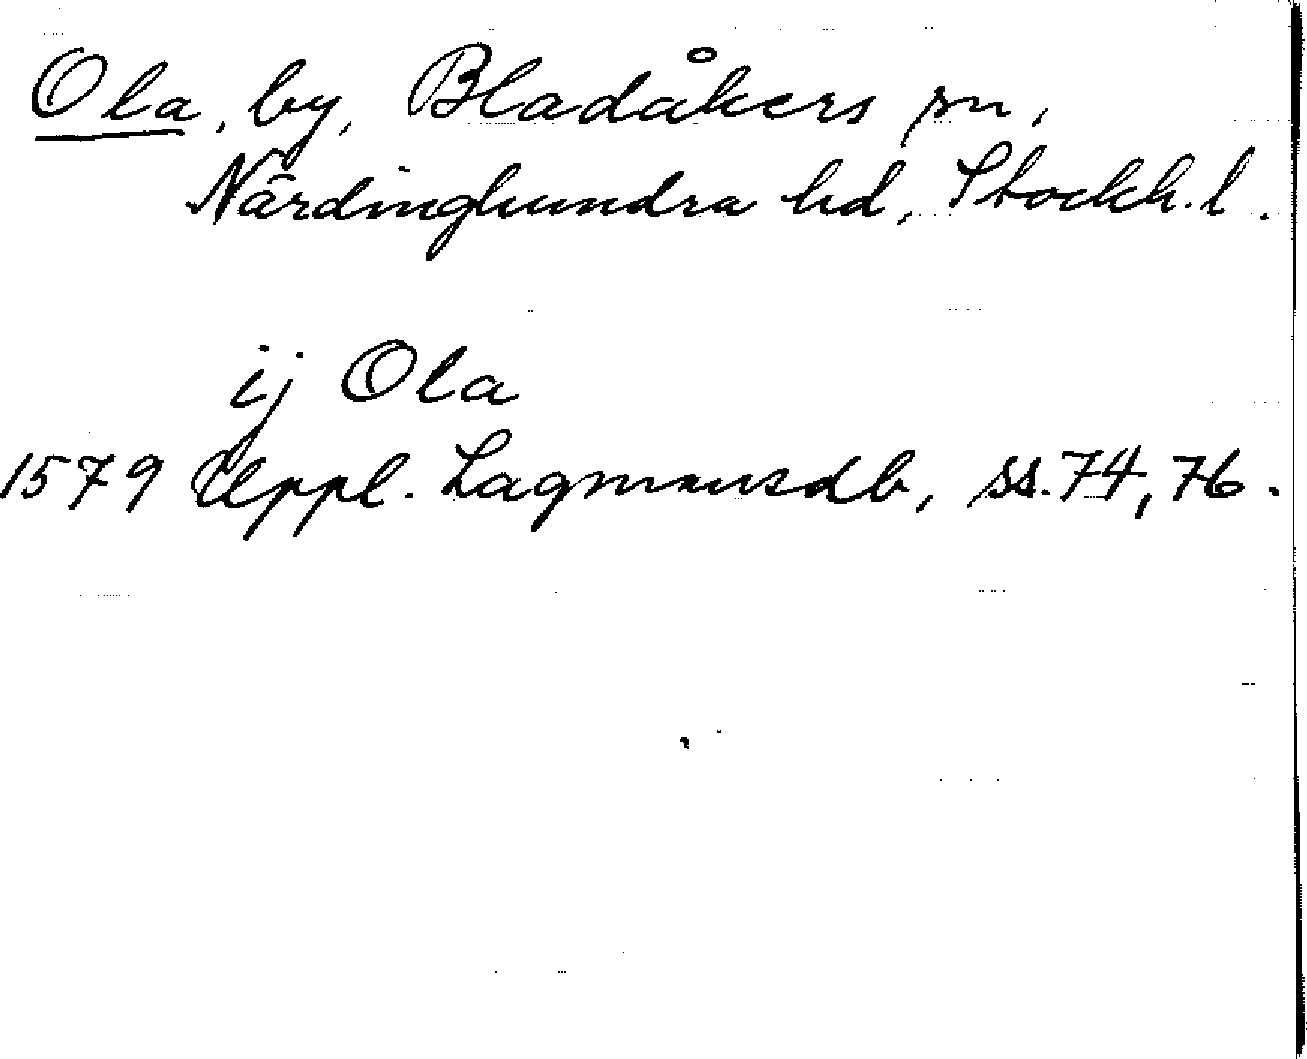 Ola, by, Bladåkers sn,
Närdinghundra hd, Stockh. l.
ij Ola
1579 Uppl. Lagmansdb, ss. 74, 76.